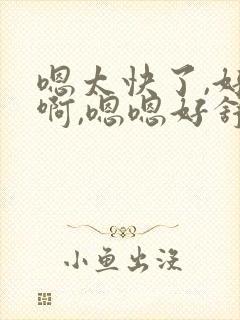 嗯太快了,好
啊,嗯嗯好舒
小鱼出没